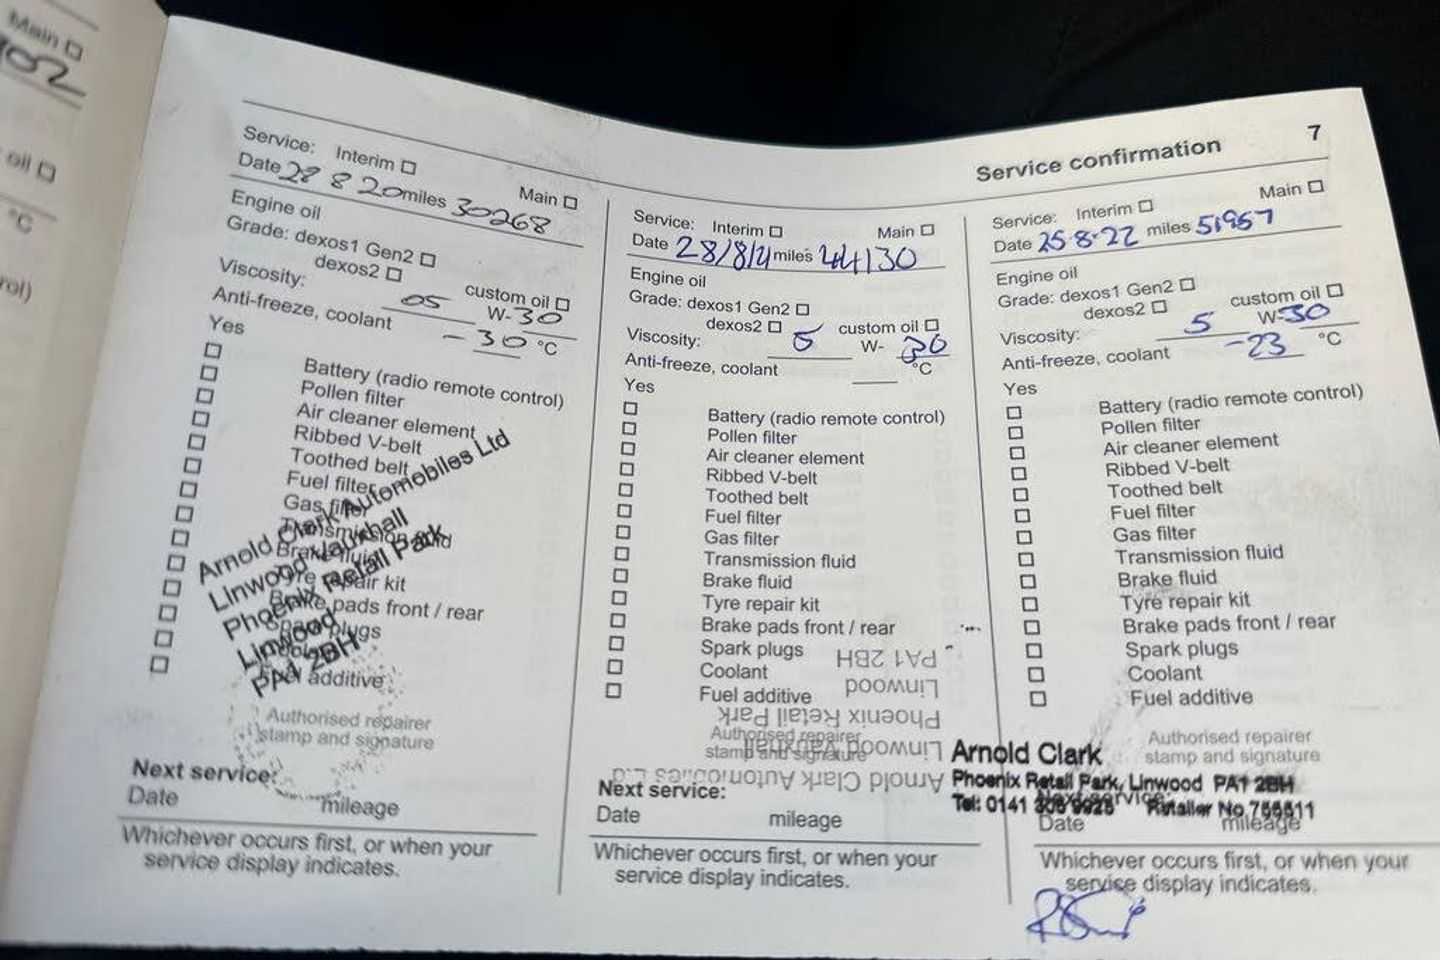 Main
902
oil
°C
rol)
7
Service confirmation
Service: Interim
Main
Date 28 8 20 miles 30268
Engine oil
Grade: dexos1 Gen2
dexos2
custom oil
Viscosity: 05 W-30
Anti-freeze, coolant -30 °C
Yes
Battery (radio remote control)
Pollen filter
Air cleaner element
Ribbed V-belt
Toothed belt
Fuel filter
Gas filter
Transmission fluid
Brake fluid
Tyre repair kit
Brake pads front / rear
Spark plugs
Coolant
Fuel additive
Arnold Clark Automobiles Ltd
Linwood Vauxhall
Phoenix Retail Park
Linwood
PA1 2BH
Authorised repairer
stamp and signature
Next service:
Date mileage
Whichever occurs first, or when your
service display indicates.
Service: Interim Main
Date 28/8/21 miles 44130
Engine oil
Grade: dexos1 Gen2
dexos2 custom oil
Viscosity: 5 W- 30
Anti-freeze, coolant °C
Yes
Battery (radio remote control)
Pollen filter
Air cleaner element
Ribbed V-belt
Toothed belt
Fuel filter
Gas filter
Transmission fluid
Brake fluid
Tyre repair kit
Brake pads front / rear
Spark plugs
Coolant
Fuel additive
Arnold Clark Automobiles Ltd
Linwood Vauxhall
Phoenix Retail Park
Linwood
PA1 2BH
Authorised repairer
stamp and signature
Next service:
Date mileage
Whichever occurs first, or when your
service display indicates.
Service: Interim Main
Date 25-8-22 miles 51957
Engine oil
Grade: dexos1 Gen2
dexos2 custom oil
Viscosity: 5 W-30
Anti-freeze, coolant -23 °C
Yes
Battery (radio remote control)
Pollen filter
Air cleaner element
Ribbed V-belt
Toothed belt
Fuel filter
Gas filter
Transmission fluid
Brake fluid
Tyre repair kit
Brake pads front / rear
Spark plugs
Coolant
Fuel additive
Authorised repairer
stamp and signature
Arnold Clark
Phoenix Retail Park, Linwood PA1 2BH
Tel: 0141 Retailer No.
Next service:
Date mileage
Whichever occurs first, or when your
service display indicates.